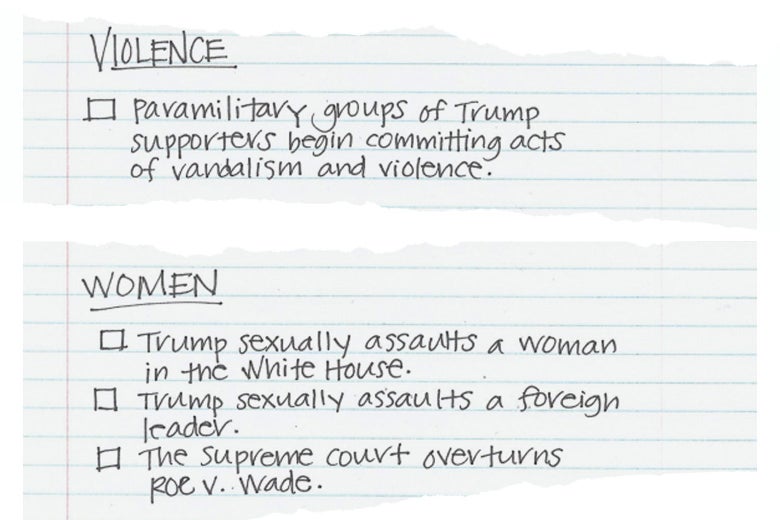 VIOLENCE
Paramilitary groups of Trump
supporters begin committing acts
of vandalism and violence.
WOMEN
Trump sexually assaults a woman
in the White House.
Trump sexually assaults a foreign
leader.
The Supreme court overturns
Roe v. Wade.